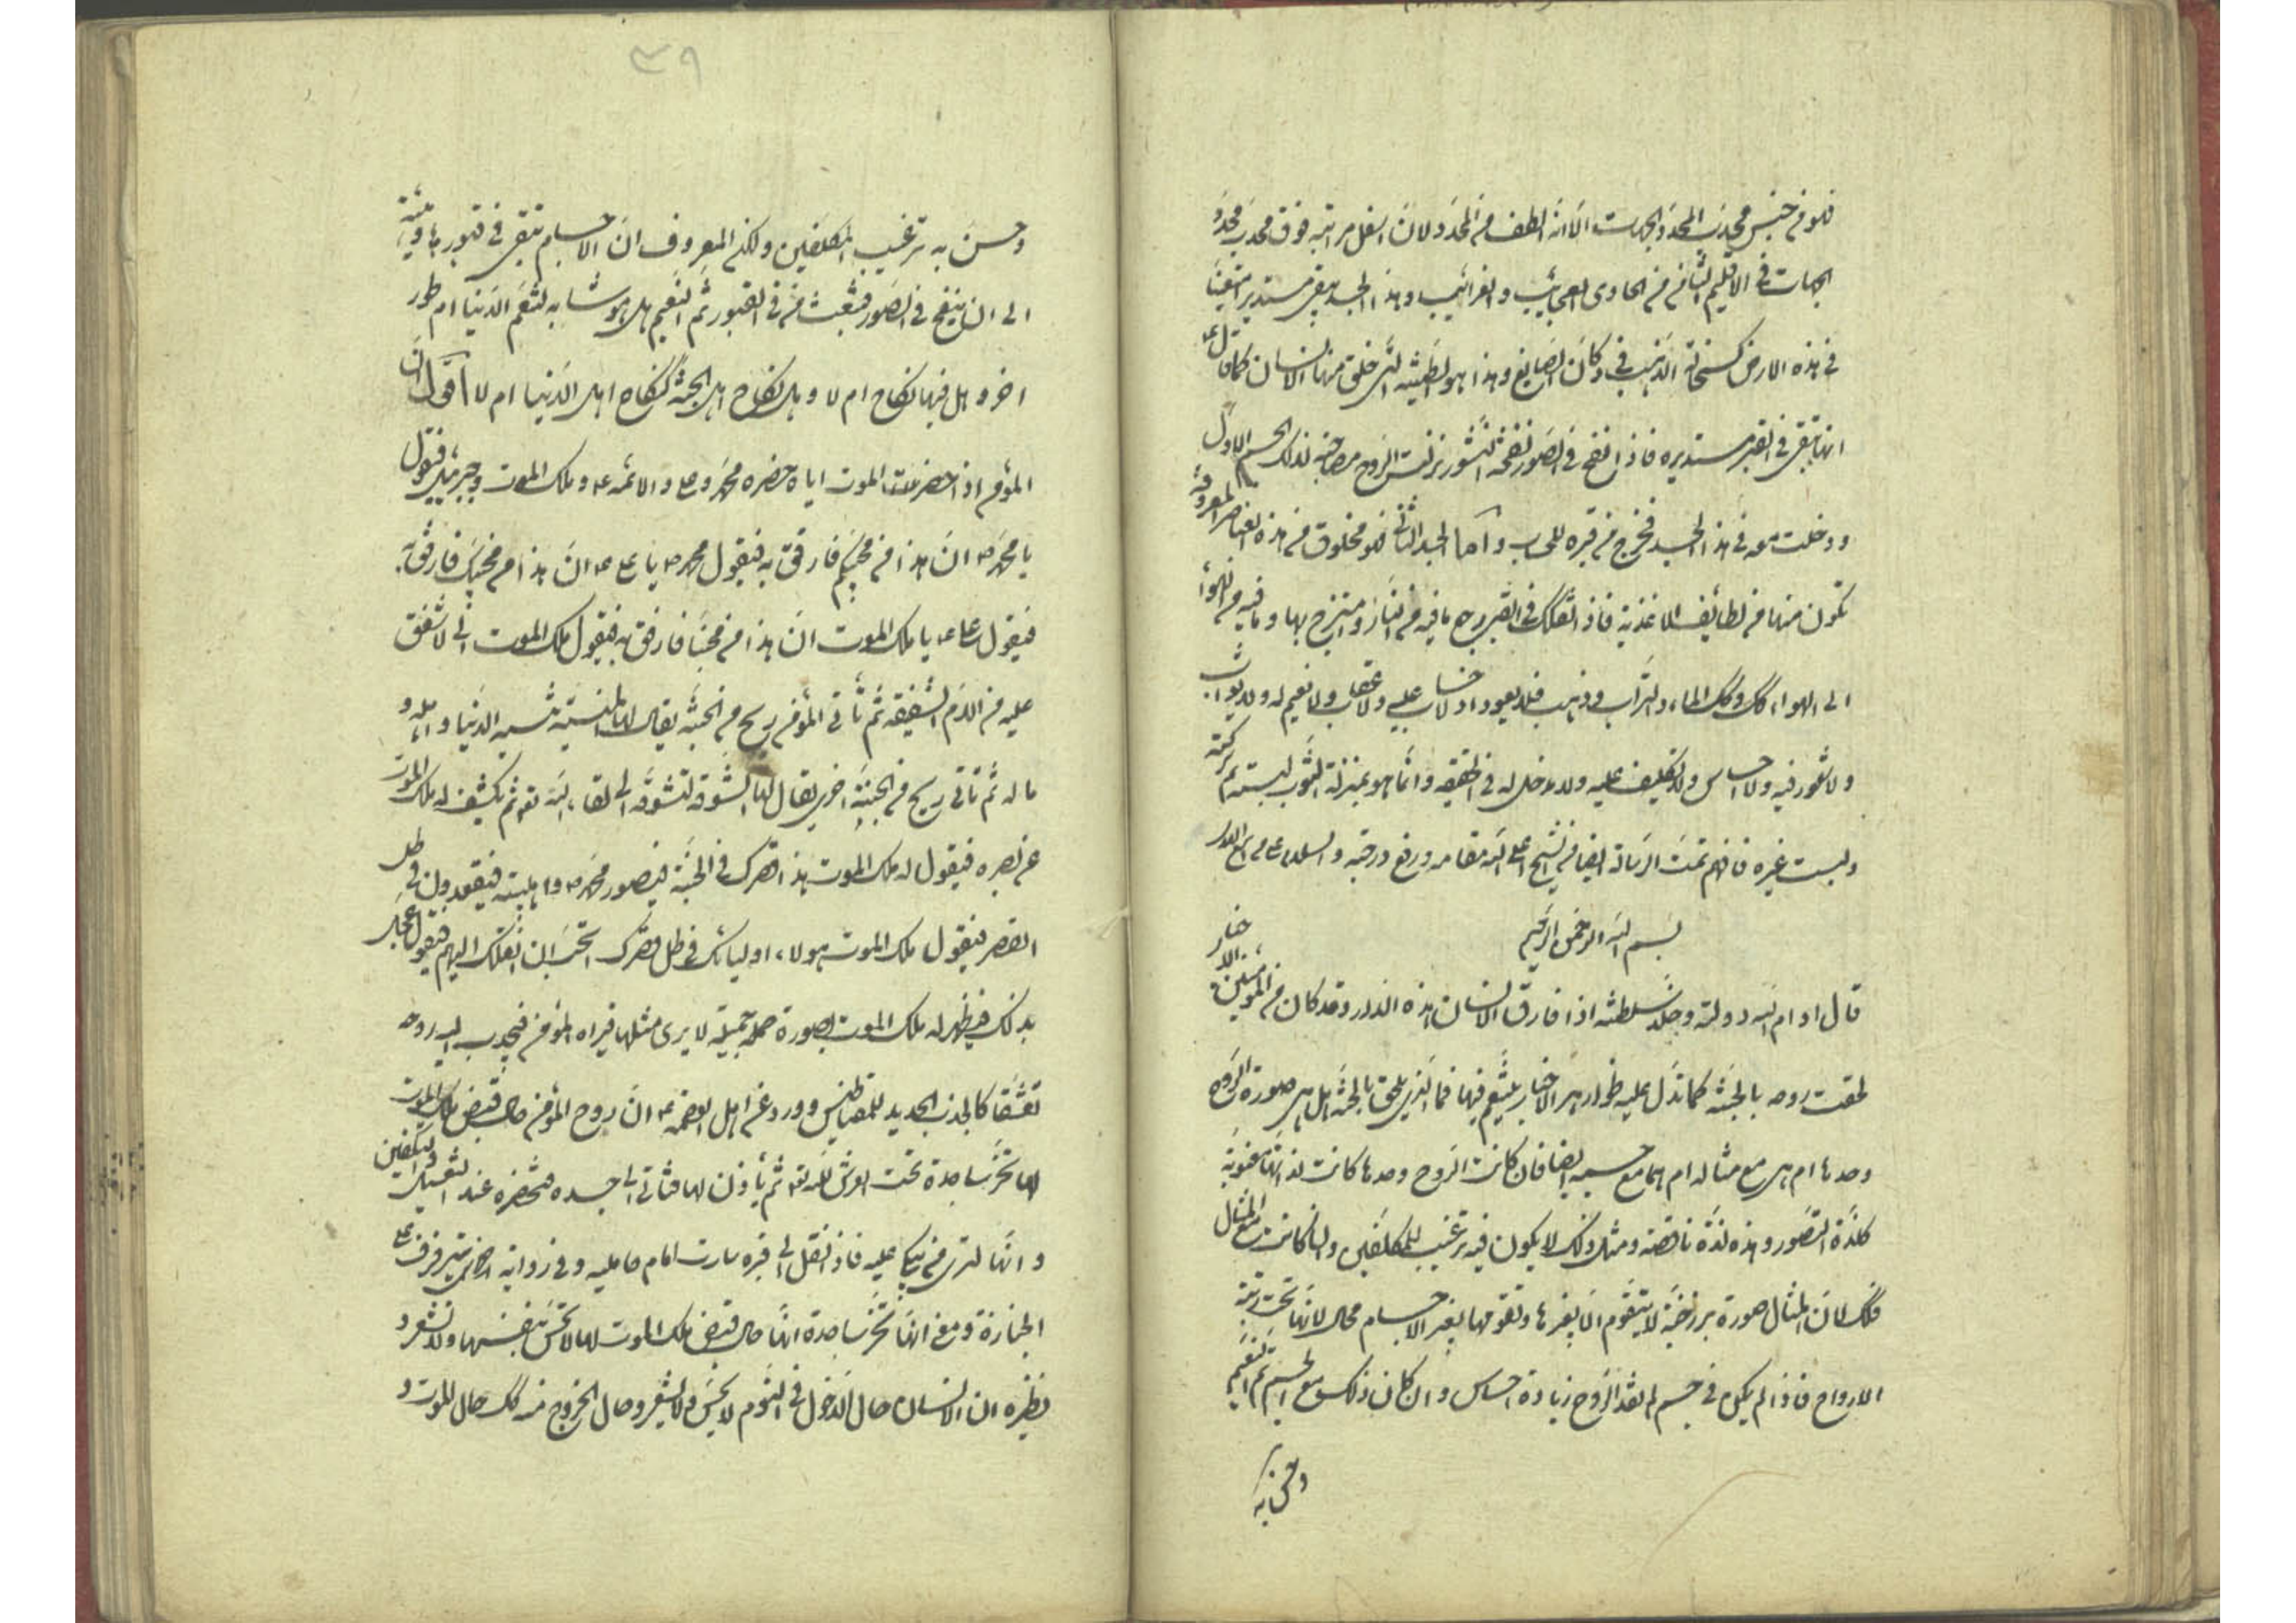 فهو من جنس محدب المحدد الجهات الا انه الطف من المحدد ولان اسفل مراتبه فوق محدب محدد
الجهات في الاقليم الثامن الحاوي العجائب والغرائب وهذا الجسد يبقى مستديرا متعينا
في هذه الارض كسحالة الذهب في دكان الصايغ وهذا هو الطينة التي خلق منها الانسان كما قال ع
انها تبقى في القبر مستديرة فاذا نفخ في الصور نفخة النشور نزلت الروح مصاحبة لذلك الجسم الاول
ودخلت معه في هذا الجسد فخرج من قبره للحساب واما الجسد الثاني فهو مخلوق من هذه العناصر المعروفة
تكون منها من لطائف الاغذية فاذا تفكك في القبر رجع ما فيه من النار وامتزج بها وما فيه من الهواء
الى الهواء كك وكك الماء والتراب وذهب فلا يعود اذ لا حساب عليه ولا عقاب ولا نعيم له ولا ثواب
ولا شعور فيه ولا احساس ولا تكليف عليه ولا مدخل له في الحقيقه وانما هو بمنزلة الثوب لبسته ثم تركته
ولبست غيره فافهم تمت الرسالة ايضا من الشيخ اعلى الله مقامه ورفع درجته والسلام على من اتبع الهدى
بسم الله الرحمن الرحيم
قال ادام الله دولته وخلد سلطنته اذا فارق الانسان هذه الدار وقد كان من المؤمنين الاخيار
لحقت روحه بالجنة كما تدل عليه ظواهر الاخبار يتنعم فيها فما الذي يلحق بالجنة اهل هي صورة الروح
وحدها ام هي مع مثاله ام هما مع جسمه ايضا فان كانت الروح وحدها كانت لذاتها معنوية
كلذة التصور وهذه لذة ناقصة ومثل ذلك لا يكون فيه ترغيب للمكلفين وان كانت مع المثال
فكك لان المثال صورة برزخية لا يتقوم الا بغيرها وتقومها بغير الاجسام محال لانها تحت رتبة
الارواح فاذا لم يكن في جسم لم تفد الروح زيادة احساس وان كان ذلك مع الجسم تم التنعيم
وحسن به
٣٩
وحسن به ترغيب المكلفين ولكن المعروف ان الاجسام تبقى في قبورها ميتة
الى ان ينفخ في الصور فتبعث من في القبور ثم النعيم هل هو مشابه لتنعم الدنيا ام طور
اخر وهل فيها نكاح ام لا وهل نكاح اهل الجنة كنكاح اهل الدنيا ام لا اقول ان
المؤمن اذا حضر ملك الموت اياه حضره محمد وعلي والائمة ع وملك الموت وجبرئيل فيقول
يا محمد ص ان هذا من محبيكم فارفق به فيقول محمد ص يا علي ع ان هذا من محبيك فارفق به
فيقول علي ع يا ملك الموت ان هذا من محبنا فارفق به فيقول ملك الموت اني لاشفق
عليه من الام الشفيقة ثم تأتي المؤمن ريح من الجنة يقال لها المنسية تنسيه الدنيا واهله و
ماله ثم تأتي ريح من الجنة اخرى يقال لها المشوقة تشوقه الى لقاء الله تعه ثم يكشف له ملك الموت
عن بصره فيقول له ملك الموت هذا قصرك في الجنة فيصور محمد ص واهلبيته فيقعدون في ظل
القصر فيقول ملك الموت هولاء اوليائك في ظل قصرك اتحب ان انقلك اليهم فيقول عجل
بذلك فيظهر له ملك الموت بصورة جميلة لا يرى مثلها فيراه المؤمن فيجذب اليه روحه
تعشقا كالجذب الحديد للمغناطيس وورد عن اهل العصمة ع ان روح المؤمن حال قبض ملك الموت
لها تخر ساجدة تحت العرش لله تعه ثم يأذن لها فتأتي الى جسده فتحضره عند التغسيل والتكفين
وانها لترى من يبكي عليه فاذا نقل الى قبره سارت امام حامليه وفي رواية اخرى ترفرف على
الجنازة ومعنى انها تخر ساجدة انها حال قبض ملك الموت لها لا تحس بنفسها ولا تشعر و
نظيره ان الانسان حال الدخول في النوم لا يحس ولا يشعر وحال الخروج منه كك حال الموت و